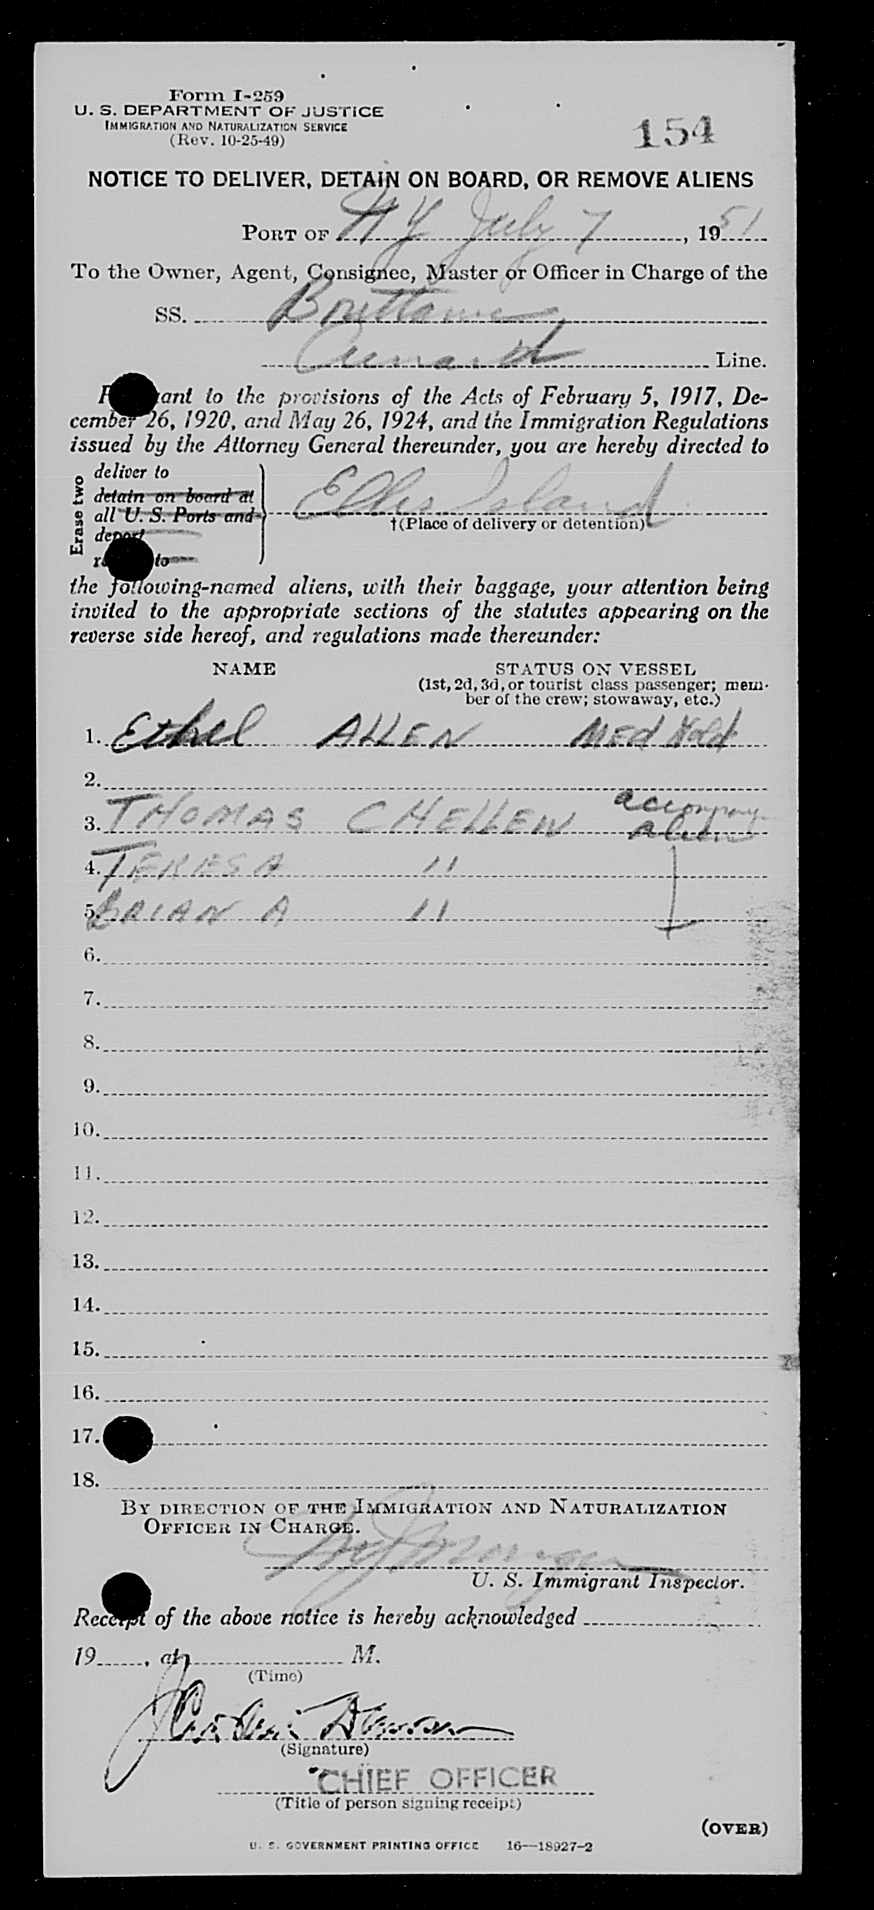 Form I-259
U. S. DEPARTMENT OF JUSTICE
IMMIGRATION AND NATURALIZATION SERVICE
(Rev. 10-25-49)
154
NOTICE TO DELIVER, DETAIN ON BOARD, OR REMOVE ALIENS
PORT OF NY July 7, 1951
To the Owner, Agent, Consignee, Master or Officer in Charge of the
SS. Brittanic
Cunard Line.
ant to the provisions of the Acts of February 5, 1917, De-
cember 26, 1920, and May 26, 1924, and the Immigration Regulations
issued by the Attorney General thereunder, you are hereby directed to
Erase two
deliver to
detain on board at
all U. S. Ports and
deport
to
Ellis Island
†(Place of delivery or detention)
the following-named aliens, with their baggage, your attention being
invited to the appropriate sections of the statutes appearing on the
reverse side hereof, and regulations made thereunder:
NAME STATUS ON VESSEL
(1st, 2d, 3d, or tourist class passenger; mem-
ber of the crew; stowaway, etc.)
1. Ethel ALLEN MED Hold
2.
3. THOMAS C HELLEN accompany
alien
4. TERESA "
5. BRIAN A "
6.
7.
8.
9.
10.
11.
12.
13.
14.
15.
16.
17.
18.
BY DIRECTION OF THE IMMIGRATION AND NATURALIZATION
OFFICER IN CHARGE.
Morgan
U. S. Immigrant Inspector.
Receipt of the above notice is hereby acknowledged
19, at M.
(Time)
(Signature)
CHIEF OFFICER
(Title of person signing receipt)
(OVER)
U. S. GOVERNMENT PRINTING OFFICE 16—18927-2